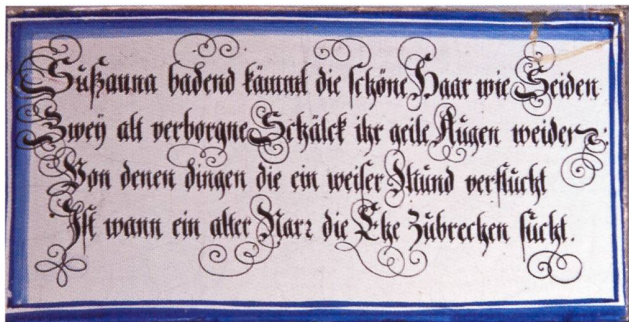 Sußanna badend kämmt die schöne Haar wie Seiden
Zwey alt verborgne Schälck ihr geile Augen weiden:
Von denen dingen die ein weiser Mund verflucht
Ist wann ein alter Narr die Ehe Zubrechen sucht.